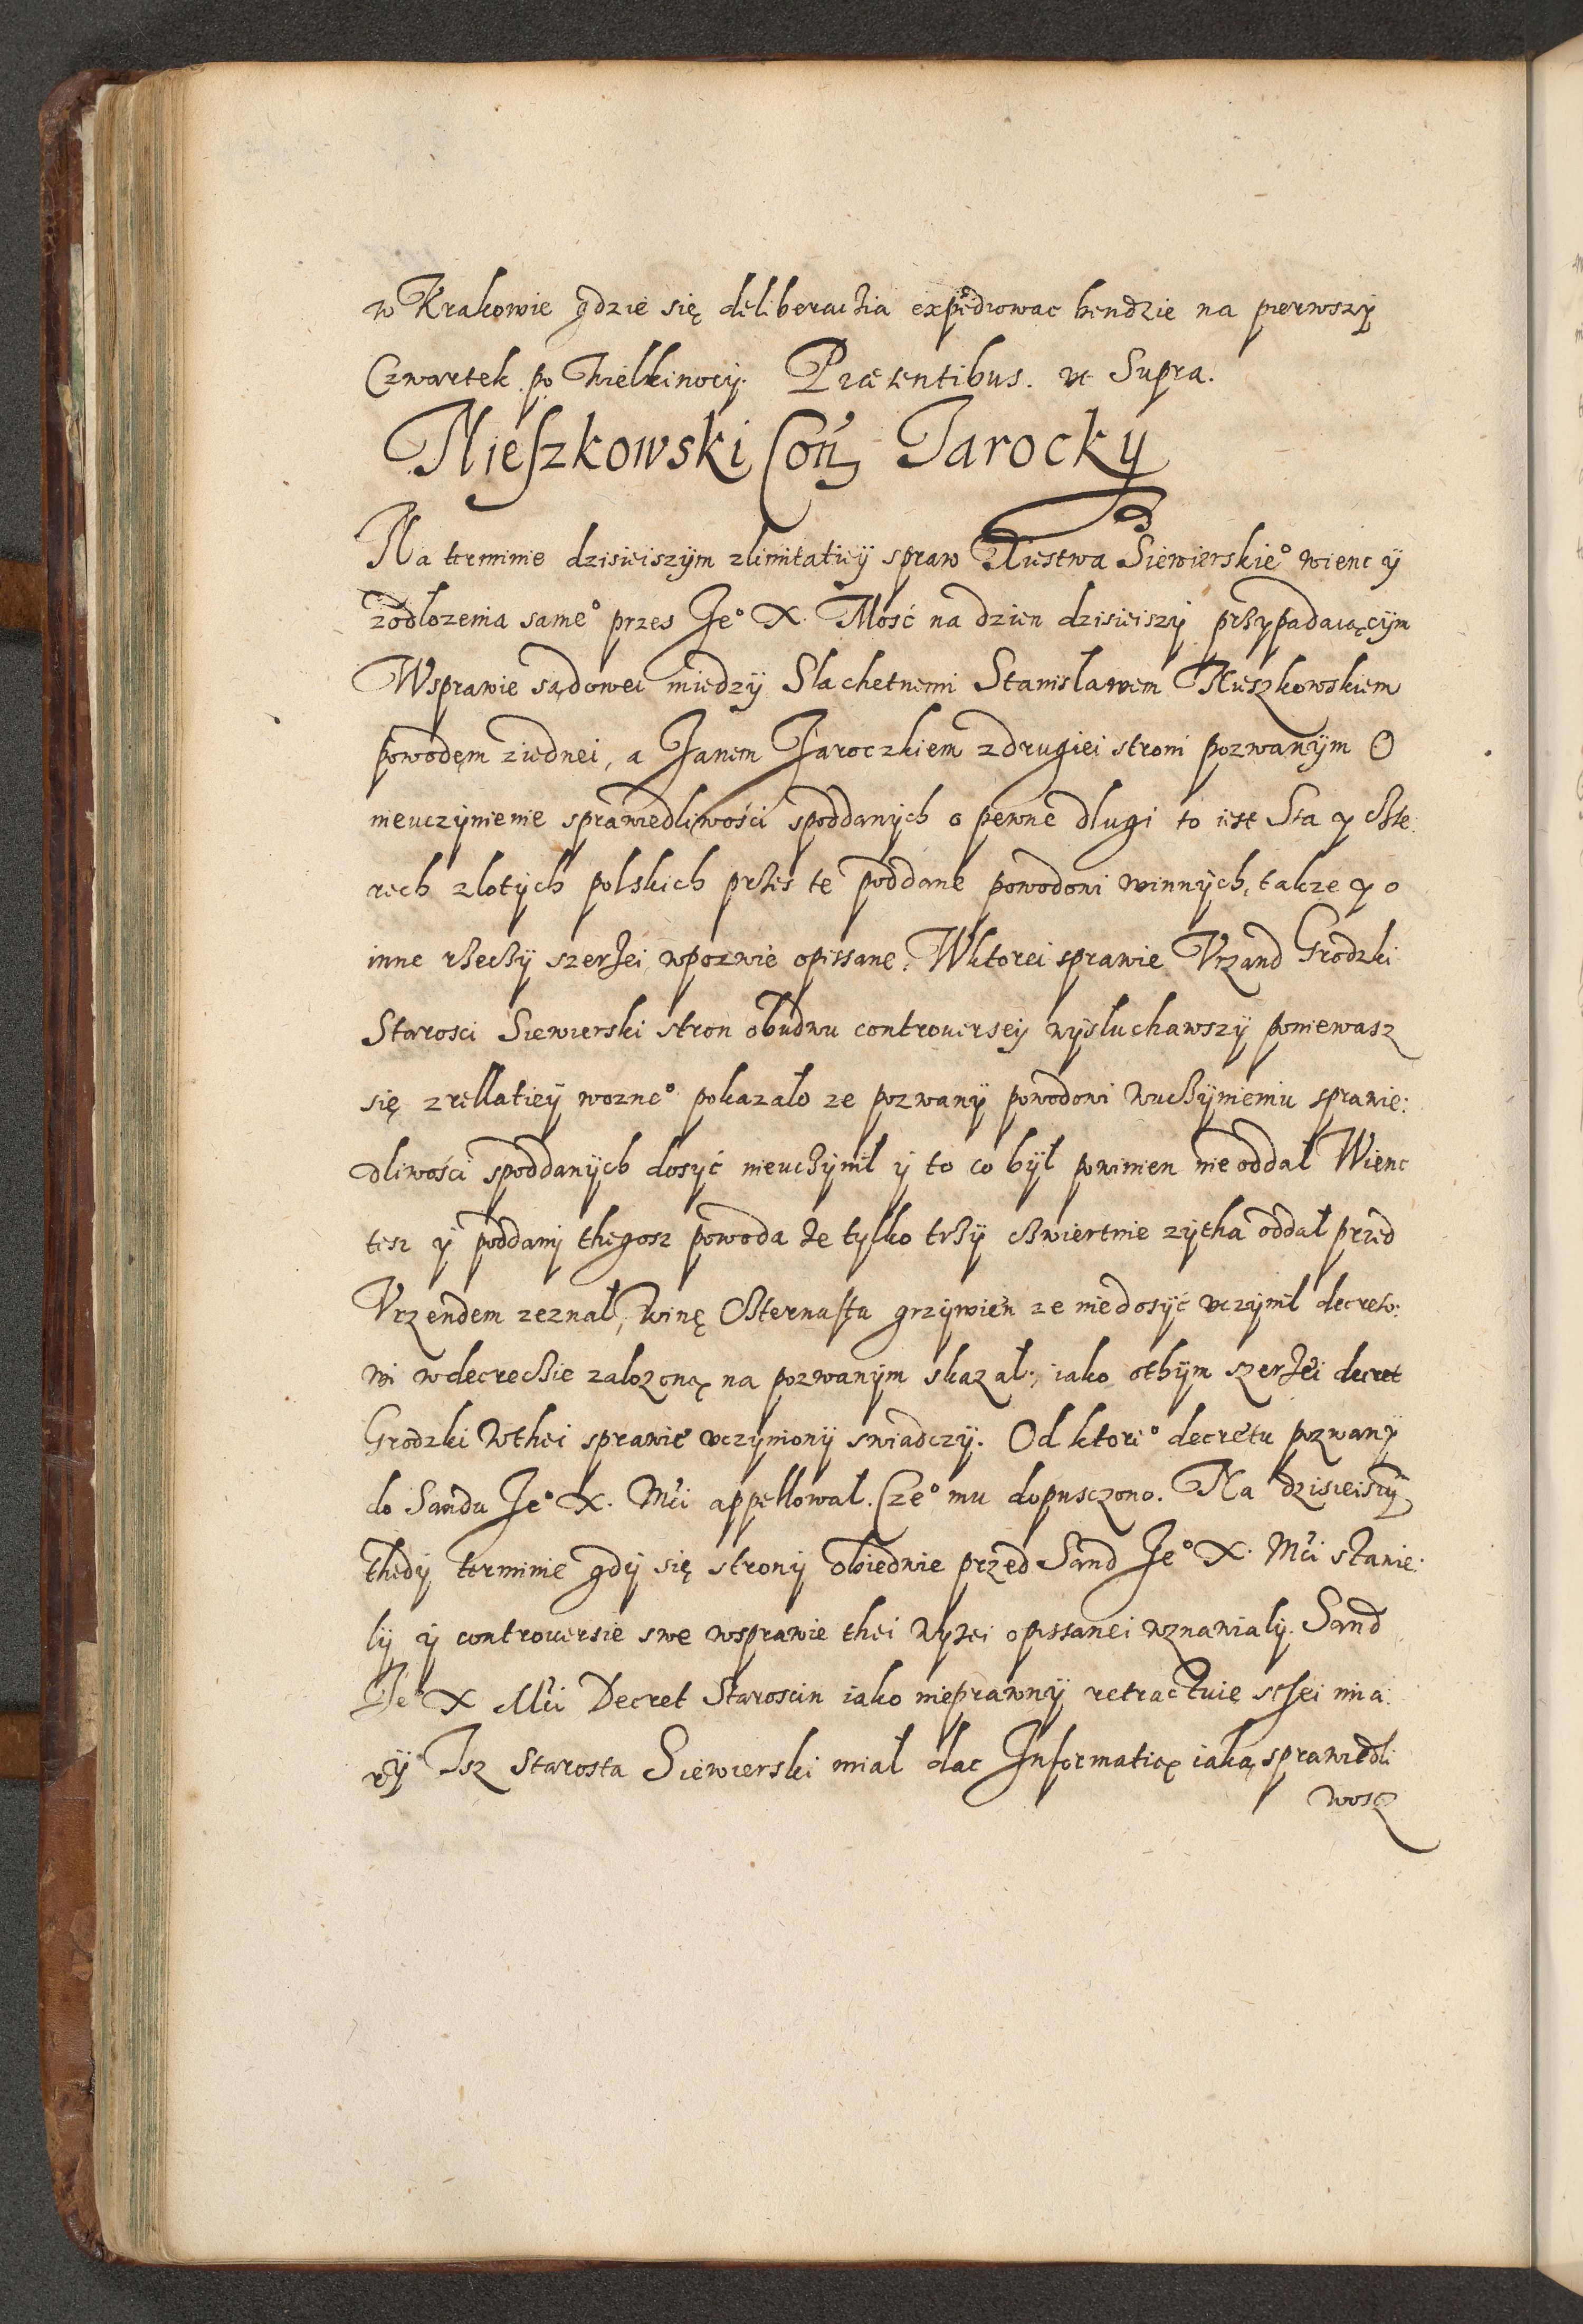 w Krakowie gdzie się deliberachia expediowac bendzie na pierwszÿ
Czwartek po Wielkinocÿ. Præsentibus. ut Supra.
Mieszkowski Coñ Jarocky
Na terminie dzisieiszÿm zlimitatieÿ spraw Xiestwa Siewierskie° wienc ÿ
zodlozenia same° przes Je° X. Mość na dzien dzisieiszÿ przypadaiącÿm
Wsprawie sądowei miedzÿ Slachetnemi Stanisławem Mieszkowskiem
powodem ziednei, a Janem Jaroczkiem zdrugiei stroni pozwanÿm O
nieuczÿnienie sprawiedliwości spoddanÿch o pewne dlugi to iest Sta y czte:
rech zlotÿch polskich przes te poddane powodowi winnÿch, takze y o
inne rzeczÿ szerzei wpozwie opissane. Wktorei sprawie Vrzand Grodzki
Starosci Siewierski stron obudwu controuerseÿ wÿsluchawszÿ poniewasz
się zrellatieÿ wozne° pokazalo ze pozwanÿ powodowi wuczÿnieniu sprawie:
dliwości spoddanÿch dosÿć nieuczÿnił ÿ to co bÿł powinien nie oddał Wienc
tesz ÿ poddanÿ thegosz powoda że tylko trzÿ czwiertnie zÿtha oddał przed
Vrzendem zeznał, winę czternasta grzÿwien ze niedosÿć uczÿnił decreto:
wi wdecreczie zalozoną na pozwanÿm skazał, iako othÿm szerzei decret
Grodzki wthei sprawie uczÿnionÿ swiadczÿ. Od ktore° decretu pozwanÿ
do Sandu Je° X. Mci appellował. Cze° mu dopusczono. Na dzisieiszÿ
thedÿ terminie gdÿ się stronÿ obiedwie przed Sand Je° X. Mci stawie:
lÿ ÿ controuersie swe wsprawie thei wyzei opissanei wznawialÿ. Sand
Je° X Mci Decret Staroscin iako nieprawnÿ retractuie sthei mia:
rÿ Isz Starosta Siewierski miał dac Informatią iaką sprawiedli
wosz